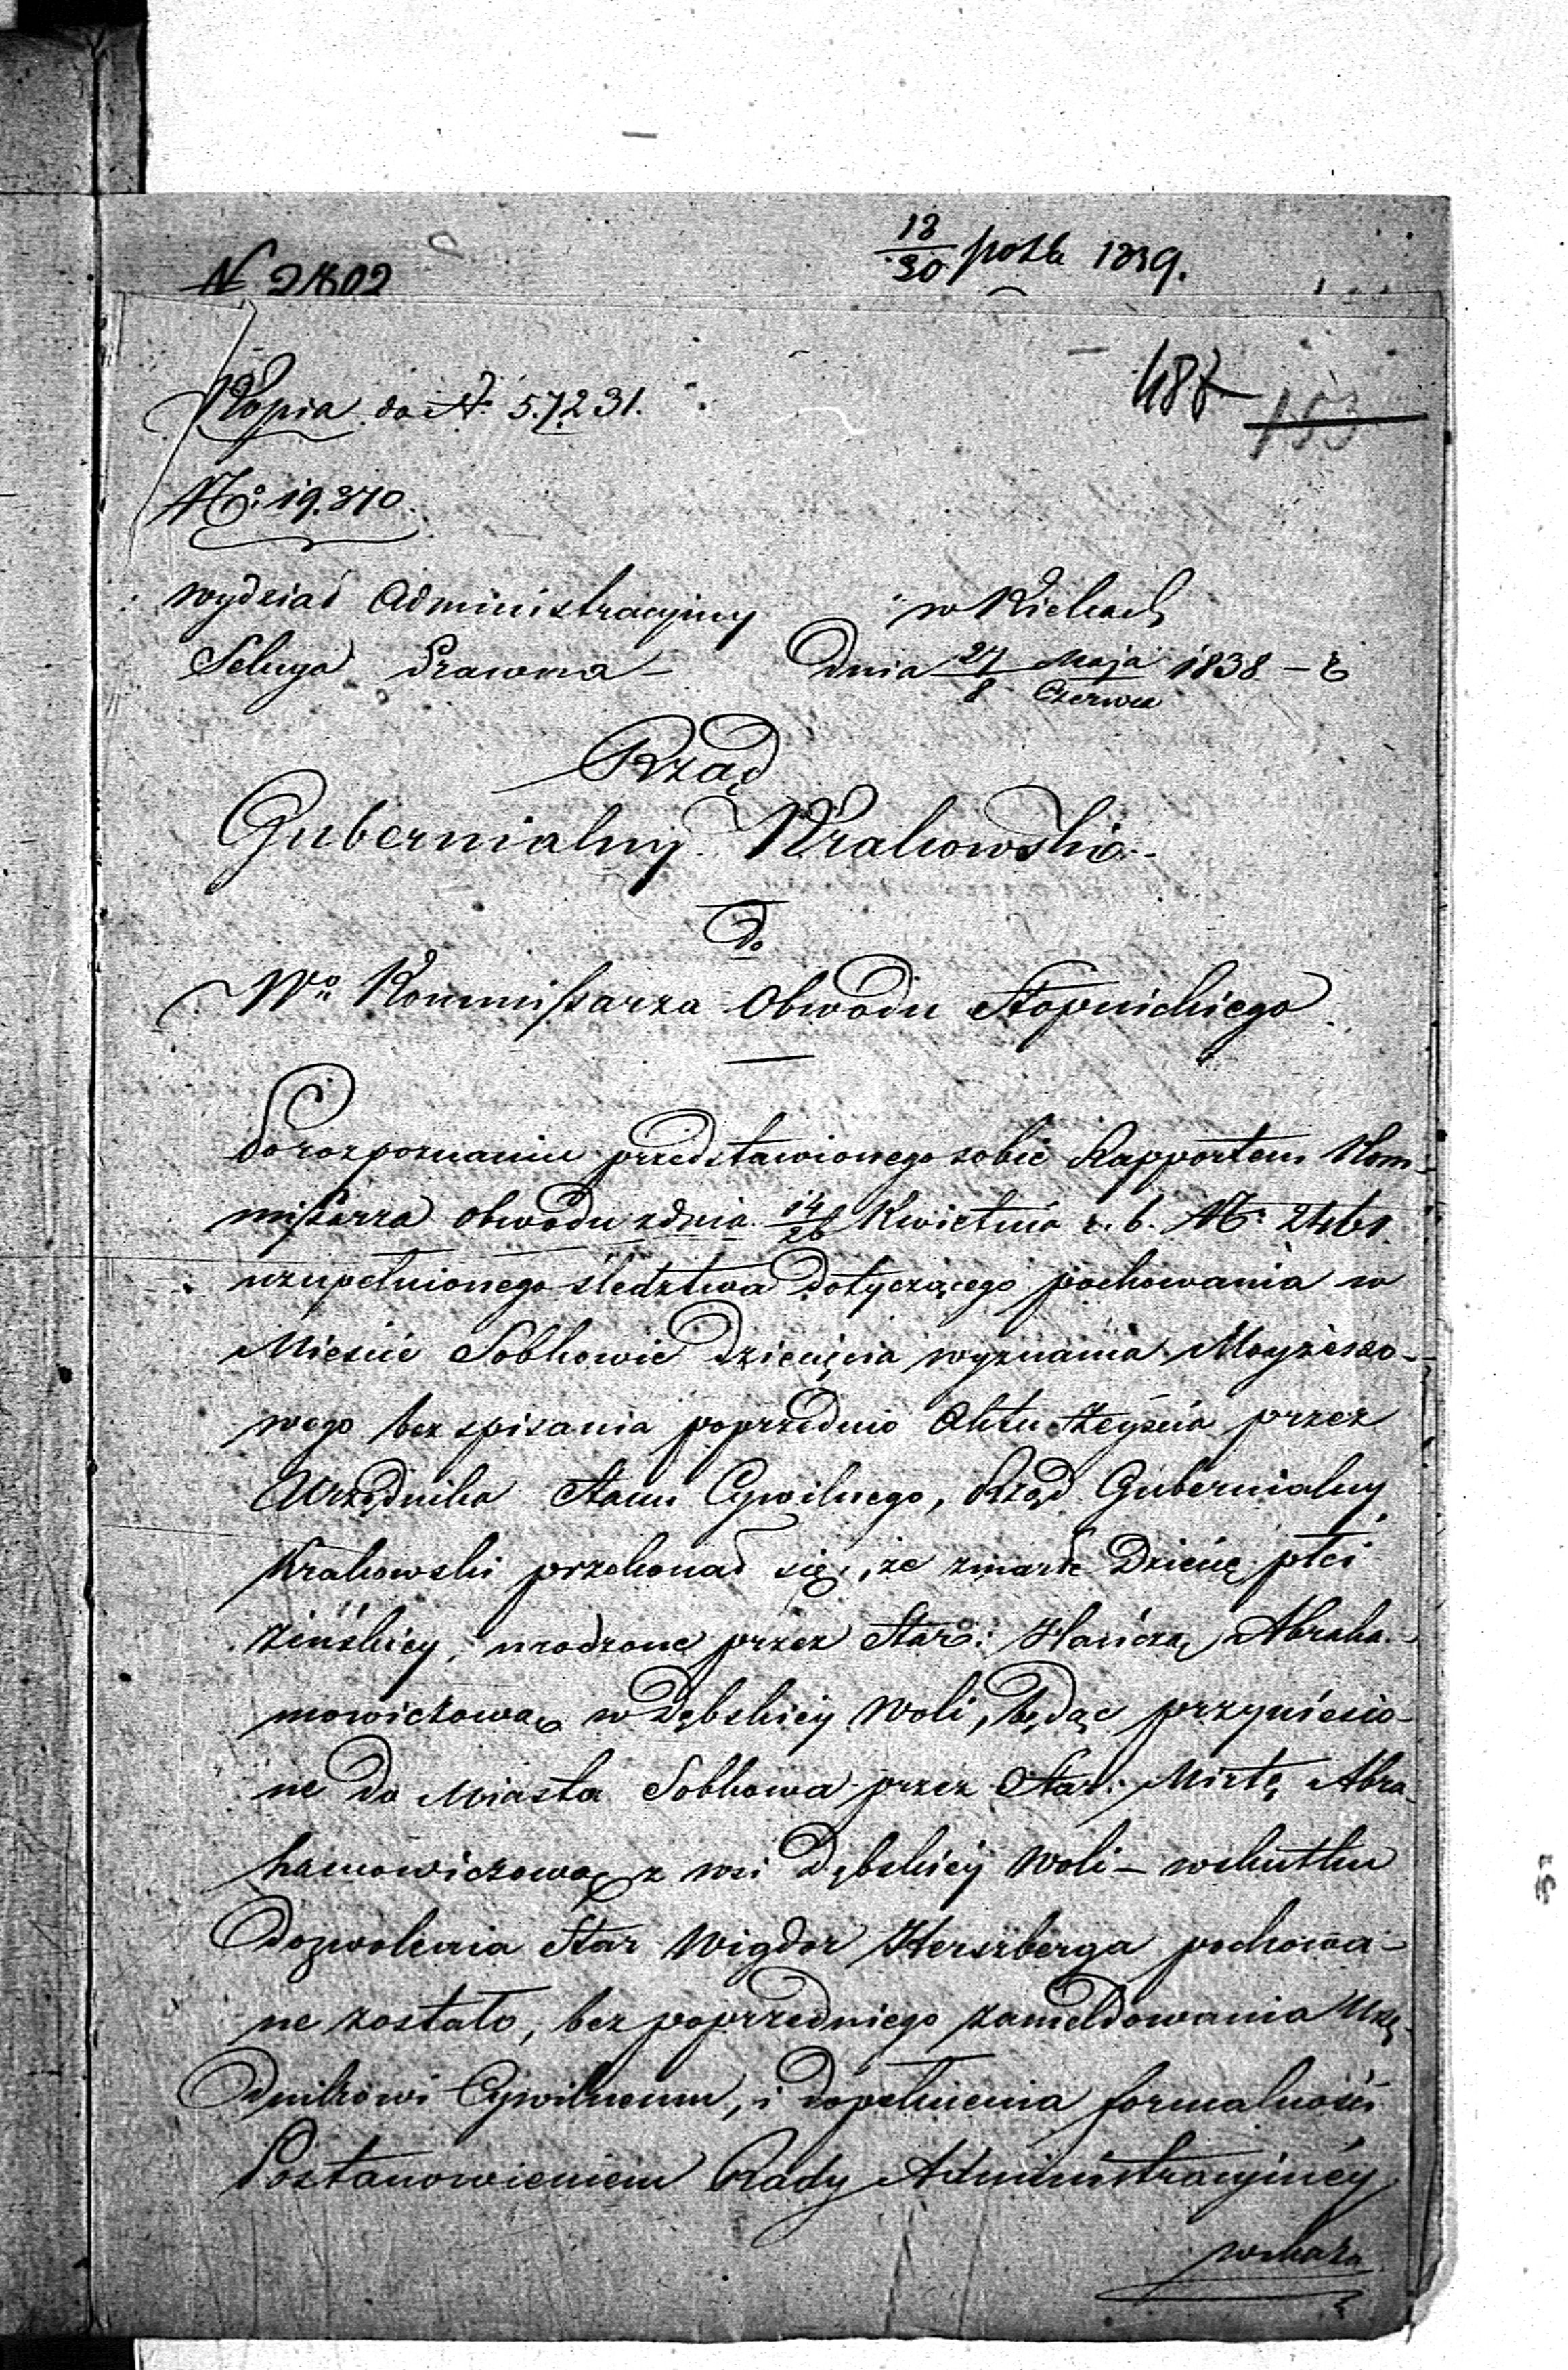 N 2802
18/30 paźdź 1839.
Kopia do N. 57231.
487 153
N: 19.370.
Wydział Administracyjny w Kielcach
Sekcya Prawna – Dnia 27 Maja / 8 Czerwca 1838 – r.
Rząd
Gubernialny Krakowski
do
Wo Kommissarza Obwodu Stopnickiego
Po rozpoznaniu przedstawionego sobie Rapportem Kom-
missarza Obwodu z dnia 14/26 Kwietnia r. b. N: 2461.
uzupełnionego śledztwa dotyczącego pochowania w
Mieście Sobkowie dziecięcia wyznania Moyżeszo-
wego bez spisania poprzednio Aktu Zeyścia przez
Urzędnika Stanu Cywilnego, Rząd Gubernialny
Krakowski przekonał się, że zmarłe Dziecię płci
żeńskiey, urodzone przez Star: Hańczą Abraha-
mowiczową w Dębskiey Woli, będąc przyniesio-
ne do Miasta Sobkowa przez Star: Mirlę Abra-
hamowiczową z wsi Dębskiey Woli – wskutku
Dozwolenia Star Wigdor Herszberga pochowa-
ne zostało, bez poprzedniego zameldowania Urzę-
dnikowi Cywilnemu, i dopełnienia formalności
Postanowieniem Rady Administracyjnéy
wskaza